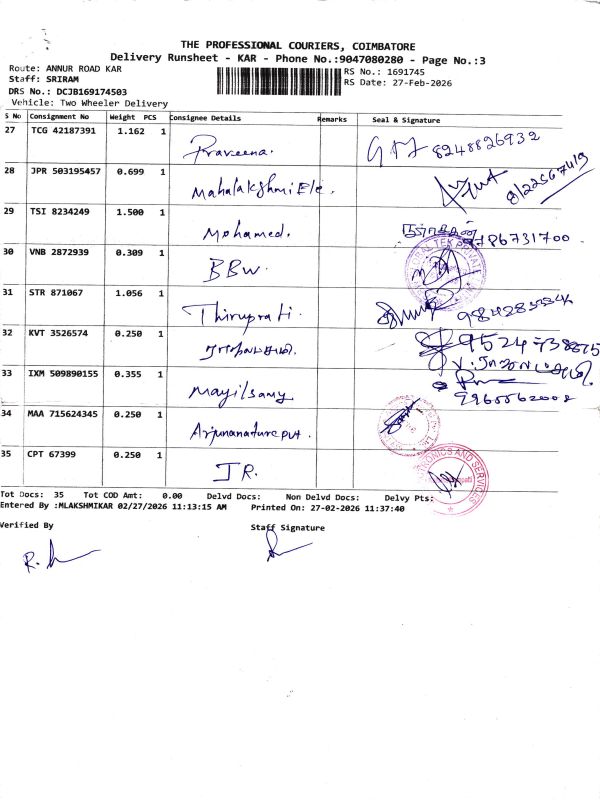 THE PROFESSIONAL COURIERS, COIMBATORE
Delivery Runsheet - KAR - Phone No.:9047080280 - Page No.:3
Route: ANNUR ROAD KAR
RS No.: 1691745
Staff: SRIRAM
RS Date: 27-Feb-2026
DRS No.: DCJB169174503
Vehicle: Two Wheeler Delivery
S No Consignment No Weight PCS Consignee Details Remarks Seal & Signature
27 TCG 42187391 1.162 1 Praveena. 8248826932
28 JPR 503195457 0.699 1 Mahalakshmi Ele.
29 TSI 8234249 1.500 1 Mohamed. 9786731700
30 VNB 2872939 0.309 1 BBW.
31 STR 871067 1.056 1 Thiruprati
32 KVT 3526574 0.250 1
33 IXM 509890155 0.355 1 Mayilsamy
34 MAA 715624345 0.250 1
35 CPT 67399 0.250 1 JR.
Tot Docs: 35 Tot COD Amt: 0.00 Delvd Docs: Non Delvd Docs: Delvy Pts:
Entered By :MLAKSHMIKAR 02/27/2026 11:13:15 AM Printed On: 27-02-2026 11:37:40
Verified By
Staff Signature